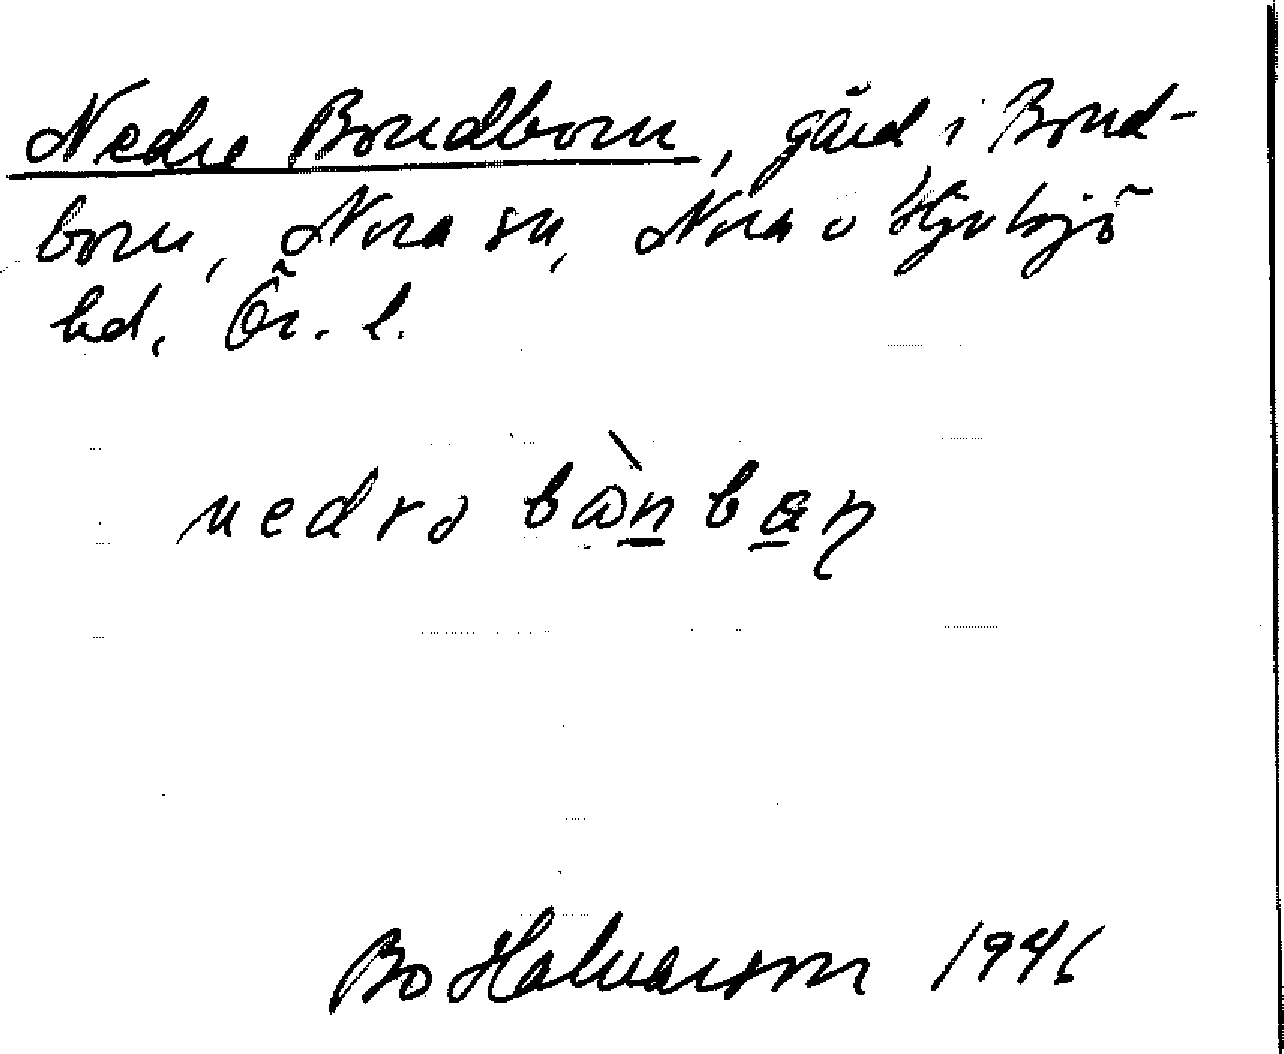 Nedre Bondborn, gård i Bond-
born, Nora sn, Nora o Hjulsjö
hd, Ör. l.
nedrə
Bo Halvarson 1946